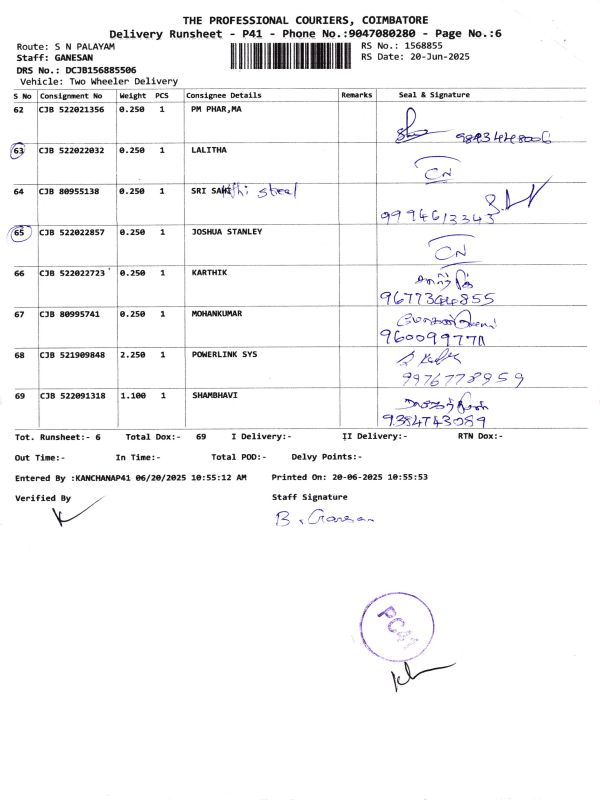 THE PROFESSIONAL COURIERS, COIMBATORE
Delivery Runsheet - P41 - Phone No.:9047080280 - Page No.:6
Route: S N PALAYAM
RS No.: 1568855
Staff: GANESAN
RS Date: 20-Jun-2025
DRS No.: DCJB156885506
Vehicle: Two Wheeler Delivery
S No Consignment No Weight PCS Consignee Details Remarks Seal & Signature
62 CJB 522021356 0.250 1 PM PHAR,MA
63 CJB 522022032 0.250 1 LALITHA CN
64 CJB 80955138 0.250 1 SRI steel
9994613343
65 CJB 522022857 0.250 1 JOSHUA STANLEY CN
66 CJB 522022723 0.250 1 KARTHIK
9677344855
67 CJB 80995741 0.250 1 MOHANKUMAR
9600997711
68 CJB 521909848 2.250 1 POWERLINK SYS
9976778959
69 CJB 522091318 1.100 1 SHAMBHAVI
9384743089
Tot. Runsheet:- 6 Total Dox:- 69 I Delivery:- II Delivery:- RTN Dox:-
Out Time:- In Time:- Total POD:- Delvy Points:-
Entered By :KANCHANAP41 06/20/2025 10:55:12 AM Printed On: 20-06-2025 10:55:53
Verified By Staff Signature
B. Ganesan
PC41